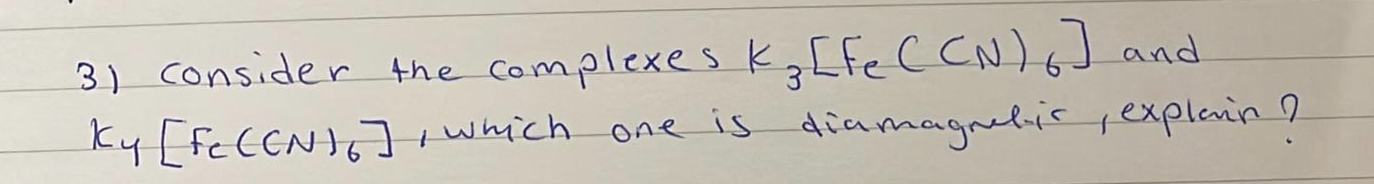 3) consider the complexes K₃[Fe(CN)₆] and
K₄[Fe(CN)₆], which one is diamagnetic, explain?